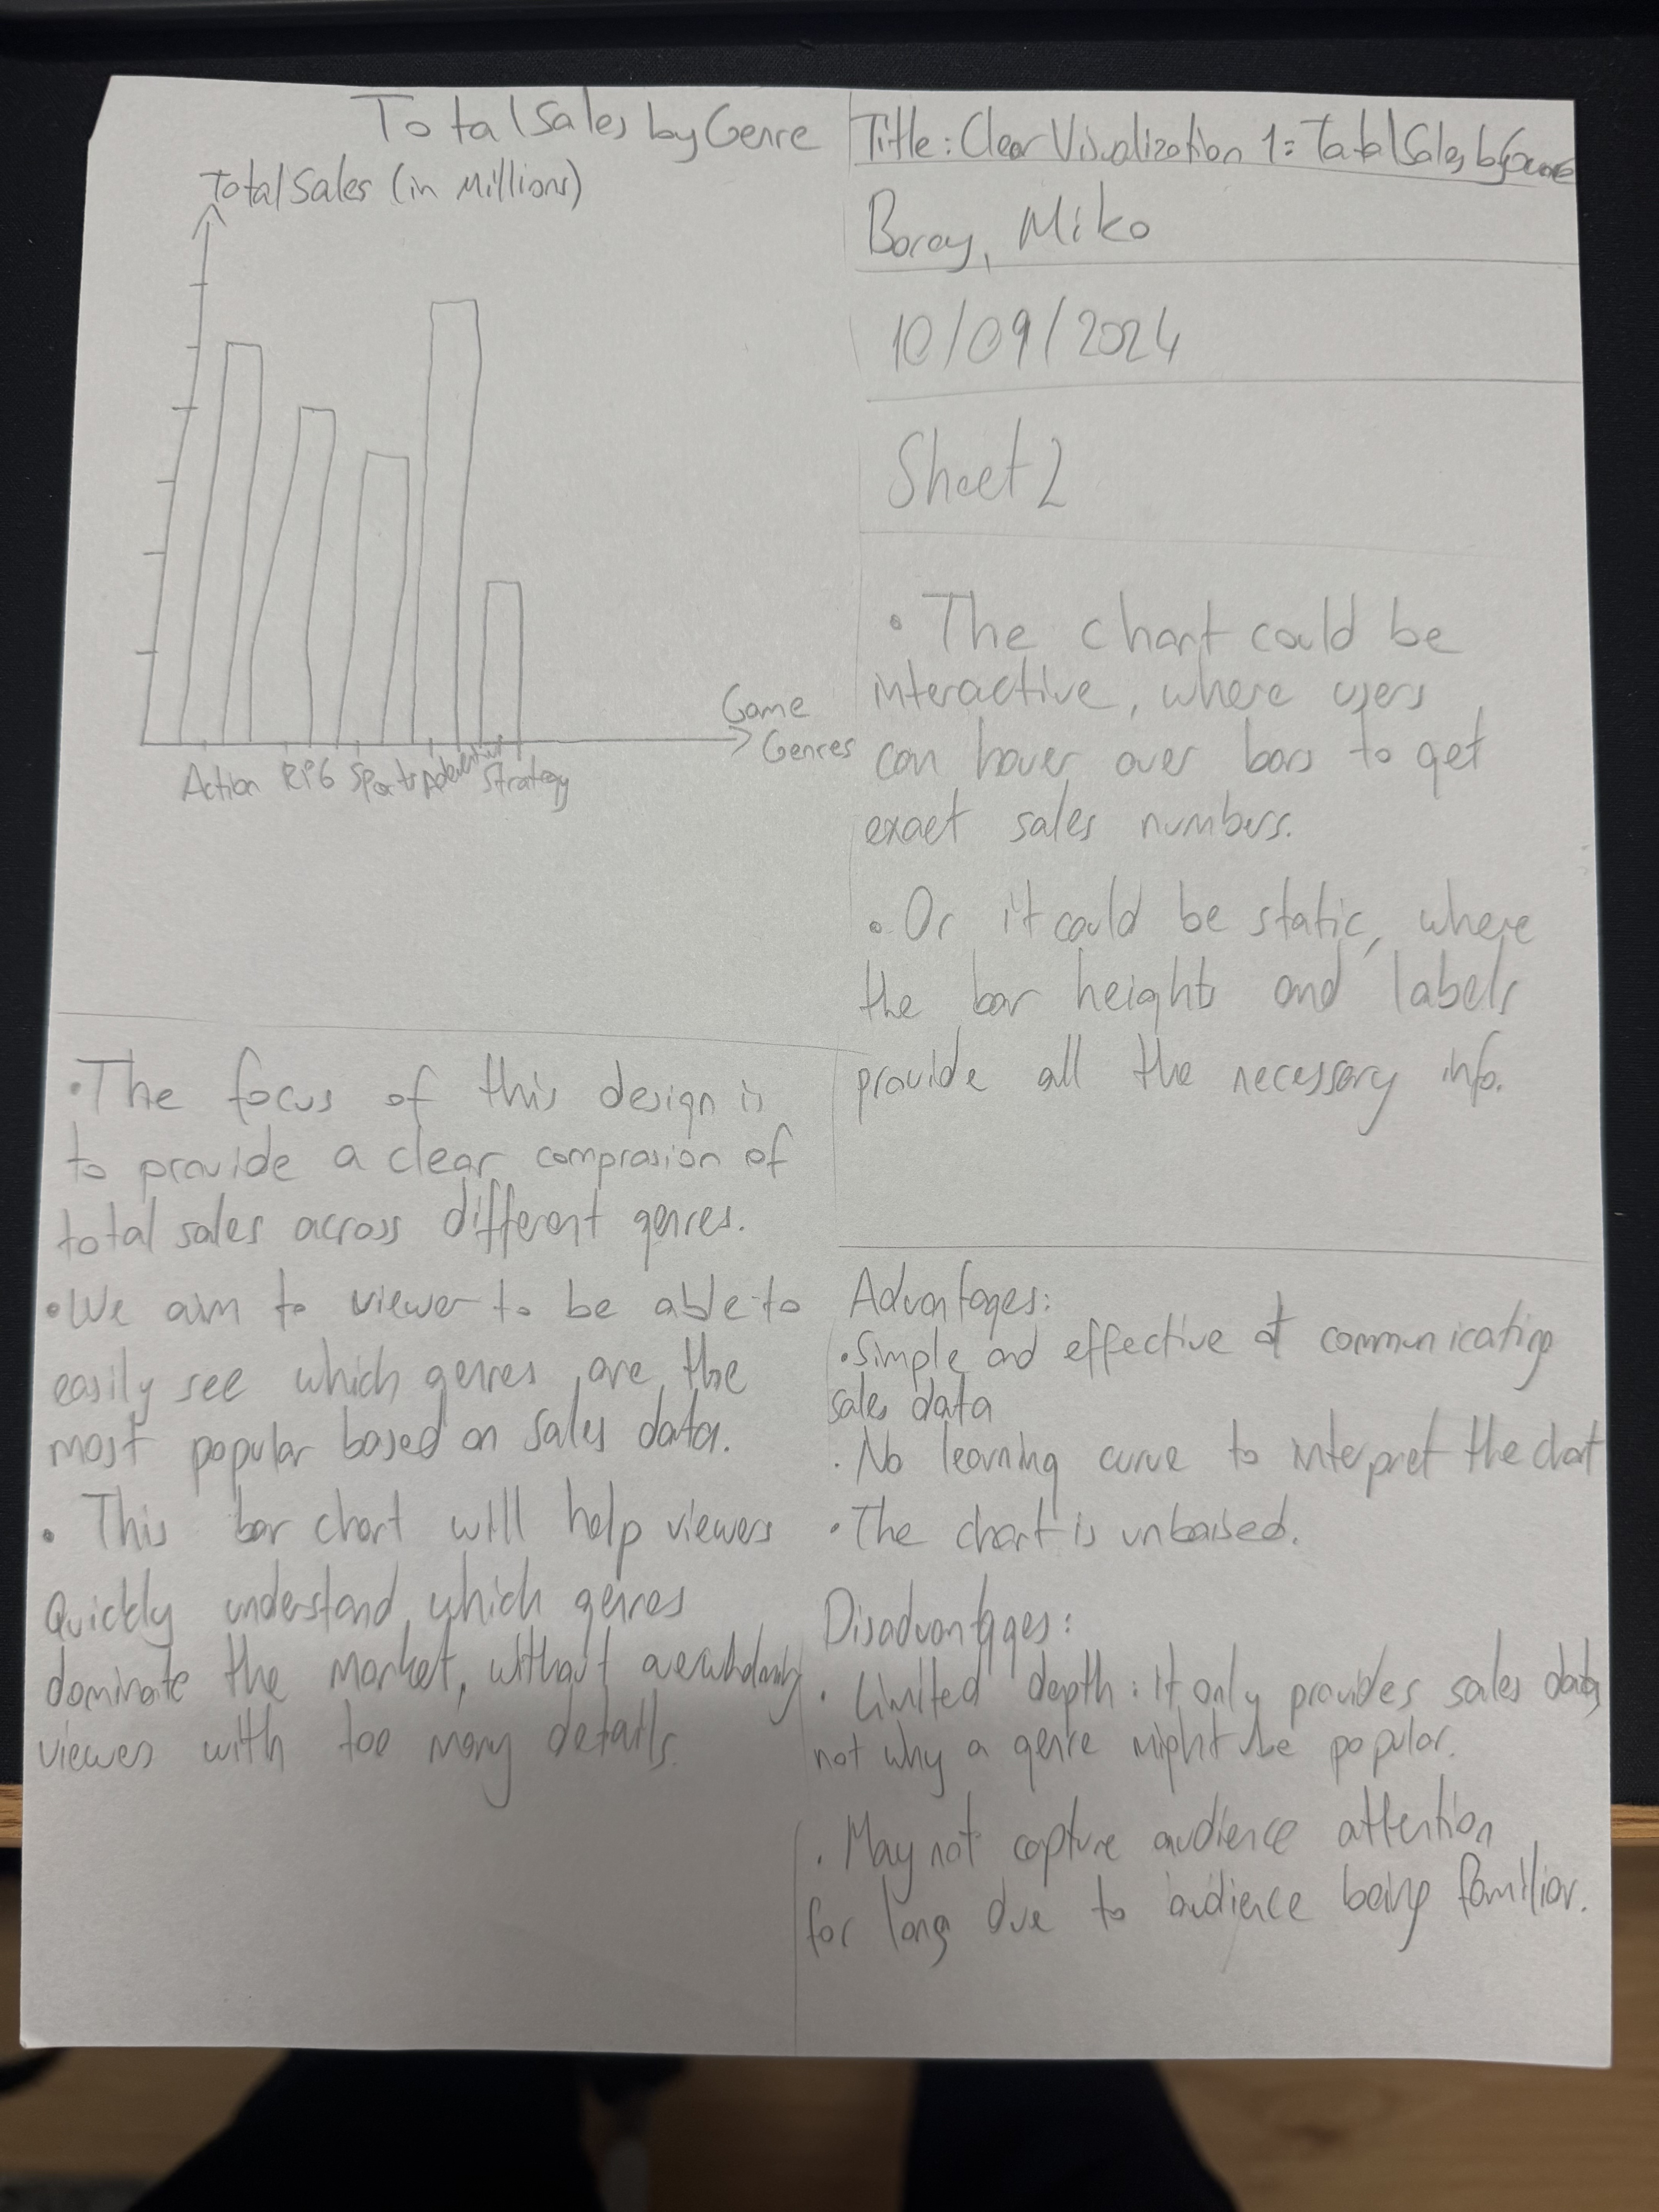 Total Sales by Genre
Total Sales (in Millions)
Game
Genres
Action RPG Sports Adventure Strategy
Title: Clear Visualization 1: Total Sales by Genre
Boray, Miko
10/09/2024
Sheet 2
• The chart could be
interactive, where users
can hover over bars to get
exact sales numbers.
• Or it could be static, where
the bar heights and labels
provide all the necessary info.
• The focus of this design is
to provide a clear comprasion of
total sales across different genres.
• We aim to viewer to be able to
easily see which genres are the
most popular based on sales data.
• This bar chart will help viewers
Quickly understand which genres
dominate the market, without
viewers with too many details.
Advantages:
• Simple and effective at communicating
sales data
• No learning curve to interpret the chart
• The chart is unbaised.
Disadvantages:
• Limited depth: it only provides sales data,
not why a genre might be popular.
• May not capture audience attention
for long due to audience being familiar.